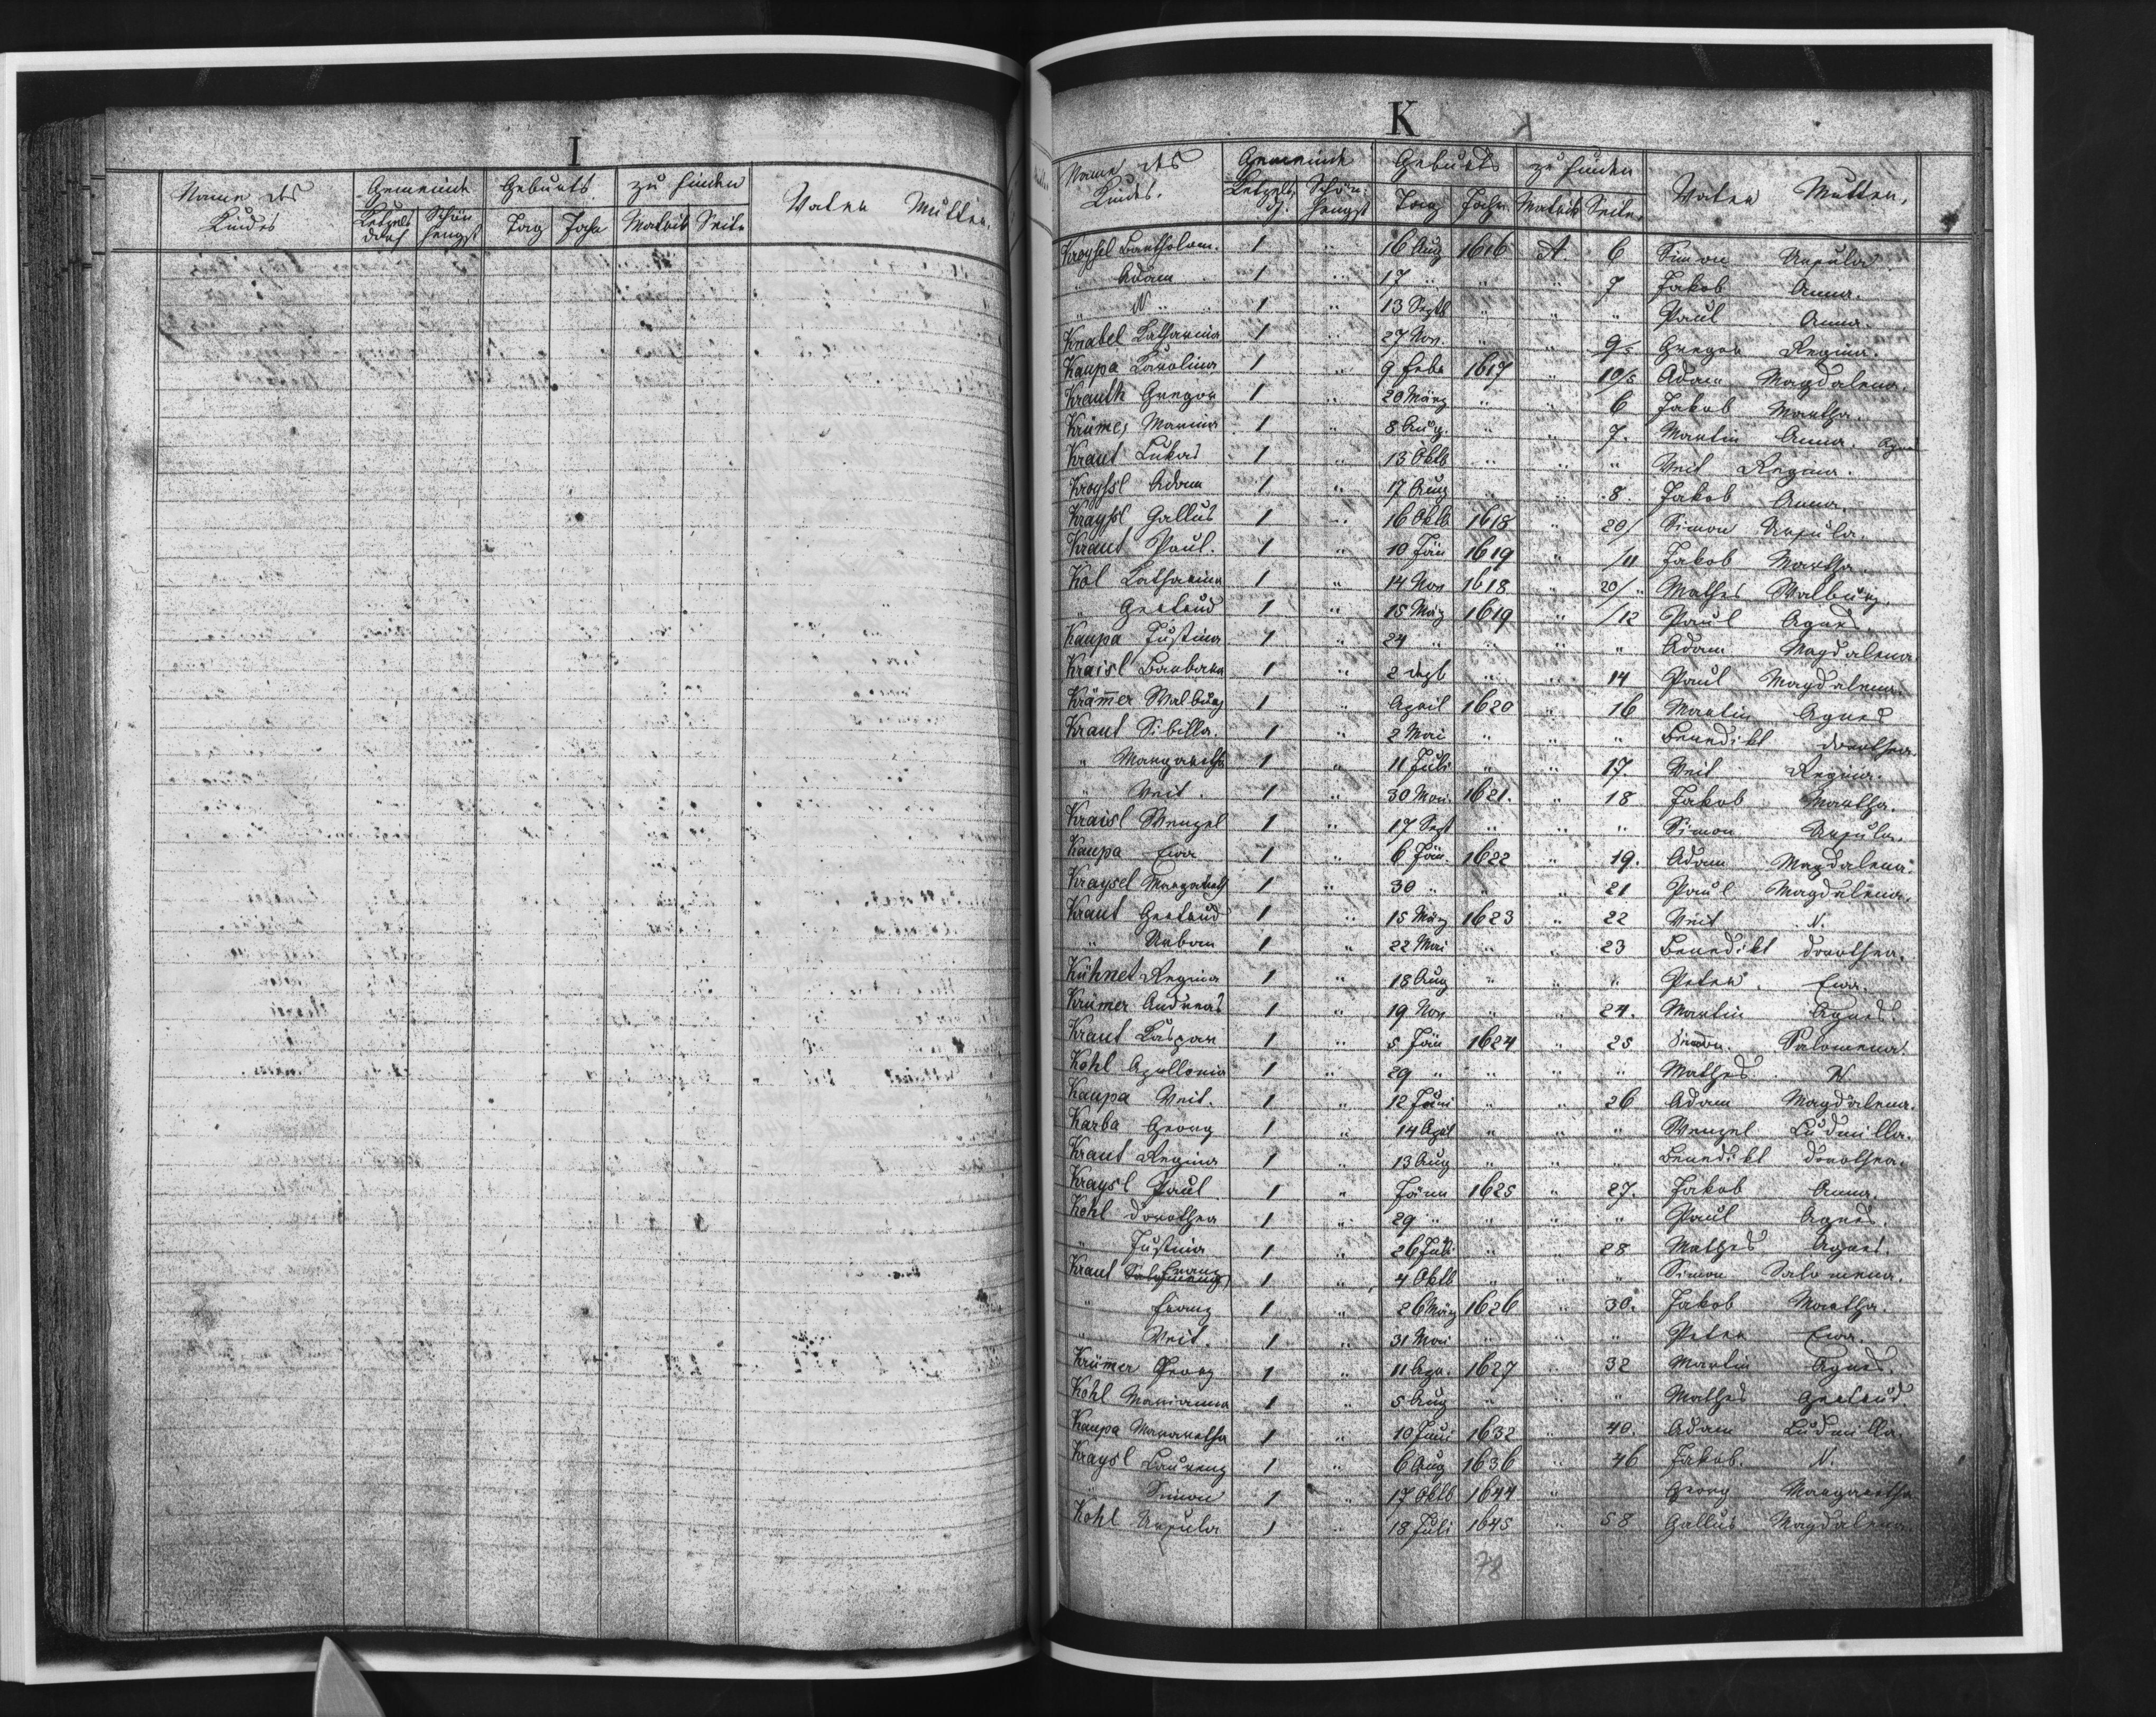 I
Name des Kindes Gemeinde Geburts zu finden Vater Mutter
Ketzelsdorf Schönhengst Tag Jahr Matrik Seite
K
Name des Kindes. Gemeinde Geburts zu finden Vater Mutter.
Ketzelsd. Schönhengst Tag Jahr Matrik Seite
Kroyssel Bartholom. 1 " 16 Aug 1616 A 6 Simon Ursula
" Adam 1 " 17 " " " 7 Jakob Anna.
" N " 1 " 13 Septb " " " Paul Anna.
Knabel Katharina 1 " 27 Nov. " " 9/5 Gregor Regina.
Kaupa Karolina 1 " 9 Febr 1617 " 10/5 Adam Magdalena.
Krauth Gregor 1 " 20 März " " 6 Jakob Martha.
Krümer Marina 1 " 8 Aug. " " 7. Martin Anna. Agnes
Kraut Lukas 1 " 13 Oktb " " " Veit Regina.
Kroyssl Adam 1 " 17 Aug " " 8. Jakob Anna.
Krayssl Gallus 1 " 16 Oktb 1618 " 20/ Simon Ursula.
Kraut Paul. 1 " 10 Jän 1619 " /11 Jakob Martha
Kol Katharina 1 " 14 Nov 1618 " 20/" Mathes Walburg.
" Gertrud 1 " 15 März 1619 " /12 Paul Agnes.
Kaupa Justina 1 " 24 " " " " Adam Magdalena
Kraisl Barbara 1 " 2 Sept " " 14 Paul Magdalena.
Krämer Walburg 1 " April 1620 " 16 Martin Agnes
Kraut Sibilla. 1 " 2 Mai " " " Benedikt Dorothea.
" Margaretha 1 " 11 Juli " " 17. Veit Regina.
" Veit. 1 " 30 Mai 1621. " 18 Jakob Martha.
Kraisl Wenzel 1 " 17 Sept " " " Simon Ursula.
Kaupa Eva 1 " 6 Jän. 1622 " 19. Adam Magdalena.
Kraysel Margareth 1 " 30 " " " 21 Paul Magdalena.
Kraut Gertrud 1 " 15 März 1623 " 22 Veit N.
" Urban 1 " 22 Mai " " 23 Benedikt Dorothea.
Kühnel Regina 1 " 18 Aug " " " Peter. Eva.
Krümer Andreas 1 " 19 Nov " " 24. Martin Agnes
Kraut Kaspar 1 " 5 Jän 1624 " 25 Simon. Salomena.
Kohl Apollonia 1 " 29 " " " " Mathes N
Kaupa Veit. 1 " 12 Juni " " 26 Adam Magdalena.
Karba Georg 1 " 14 Apl " " " Wenzel Ludmilla.
Kraut Regina 1 " 13 Aug " " " Benedikt Dorothea.
Kraysl Paul 1 " Jänn 1625 " 27. Jakob Anna.
Kohl Dorothea 1 " 29 " " " " Paul Agnes.
" Justina 1 " 26 Juli " " 28 Mathes Agnes.
Kraut Salomena Franz 1 " 4 Oktb " " " Simon Salomena.
" Franz 1 " 26 März 1626 " 30. Jakob Martha.
" Veit. 1 " 31 Mai " " " Peter Eva.
Krümer Georg 1 " 11 Apr. 1627 " 32 Martin Agnes.
Kohl Marianna 1 " 5 Aug " " " Mathes Gertrud.
Kaupa Margaretha 1 " 10 Juni 1632 " 40. Adam Ludmilla.
Kraysl Laurenz 1 " 6 Aug 1636 " 46 Jakob. N.
" Simon 1 " 17 Oktb 1644 " Georg Margaretha
Kohl Ursula 1 " 18 Juli 1645 " 58 Gallus Magdalena
78